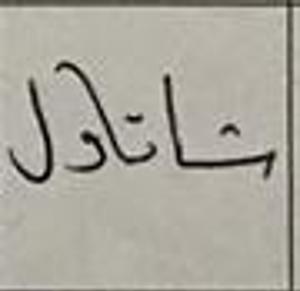 شاتاول